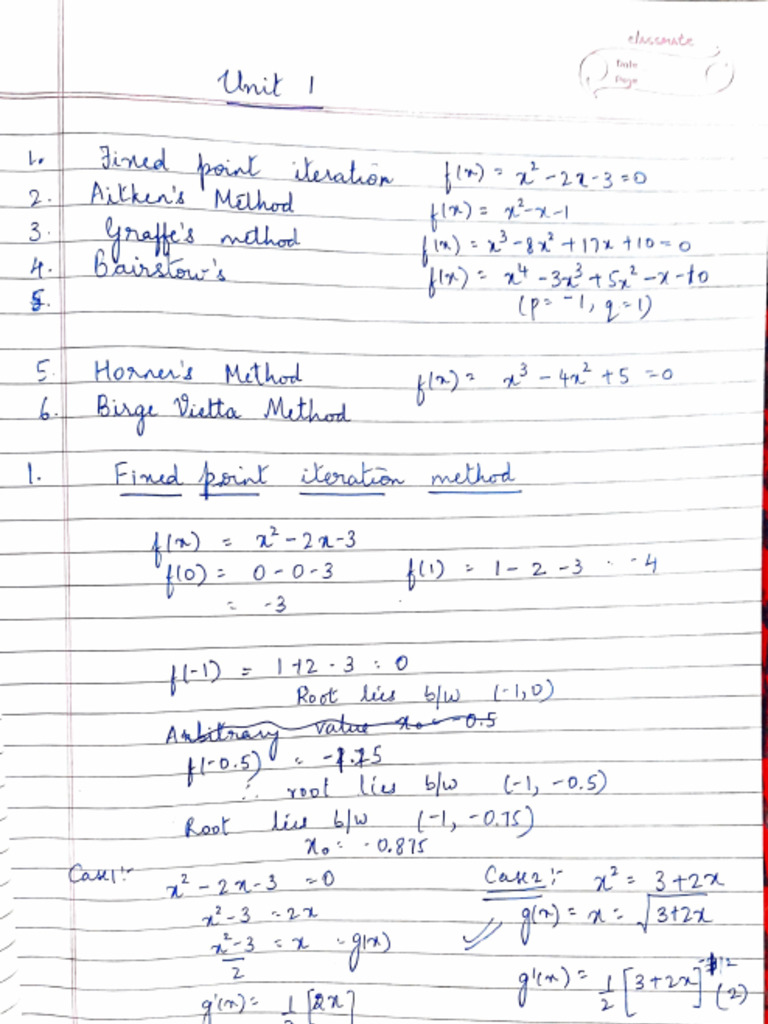 classmate
Date
Page
Unit 1
1. Fixed point iteration f(x) = x² - 2x - 3 = 0
2. Aitken's Method f(x) = x² - x - 1
3. Graffe's method f(x) = x³ - 8x² + 17x + 10 = 0
4. Bairstow's f(x) = x⁴ - 3x³ + 5x² - x - 10
5. (p = -1, q = 1)
5. Horner's Method f(x) = x³ - 4x² + 5 = 0
6. Birge Vietta Method
1. Fixed point iteration method
f(x) = x² - 2x - 3
f(0) = 0 - 0 - 3 f(1) = 1 - 2 - 3 = -4
= -3
f(-1) = 1 + 2 - 3 = 0
Root lies b/w (-1, 0)
Arbitrary value x₀ = -0.5
f(-0.5) = -1.75
∴ root lies b/w (-1, -0.5)
Root lies b/w (-1, -0.75)
x₀ = -0.875
Case 1:- x² - 2x - 3 = 0 Case 2:- x² = 3 + 2x
x² - 3 = 2x g(x) = x = √(3+2x)
(x² - 3)/2 = x = g(x)
g'(x) = 1/2 [2x] g'(x) = 1/2 [3+2x]^(-1/2) (2)